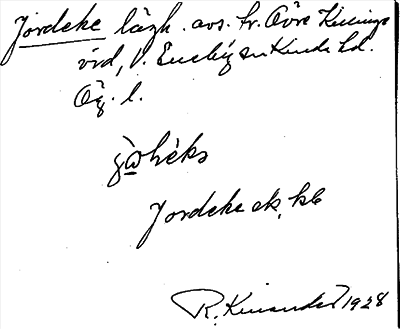 Jordeke lägh. avs. fr. Övre Kisinge
vid, V. Eneby sn Kinda hd.
Ög. l.
Jordeke ek. kb
R. Kinander 1928